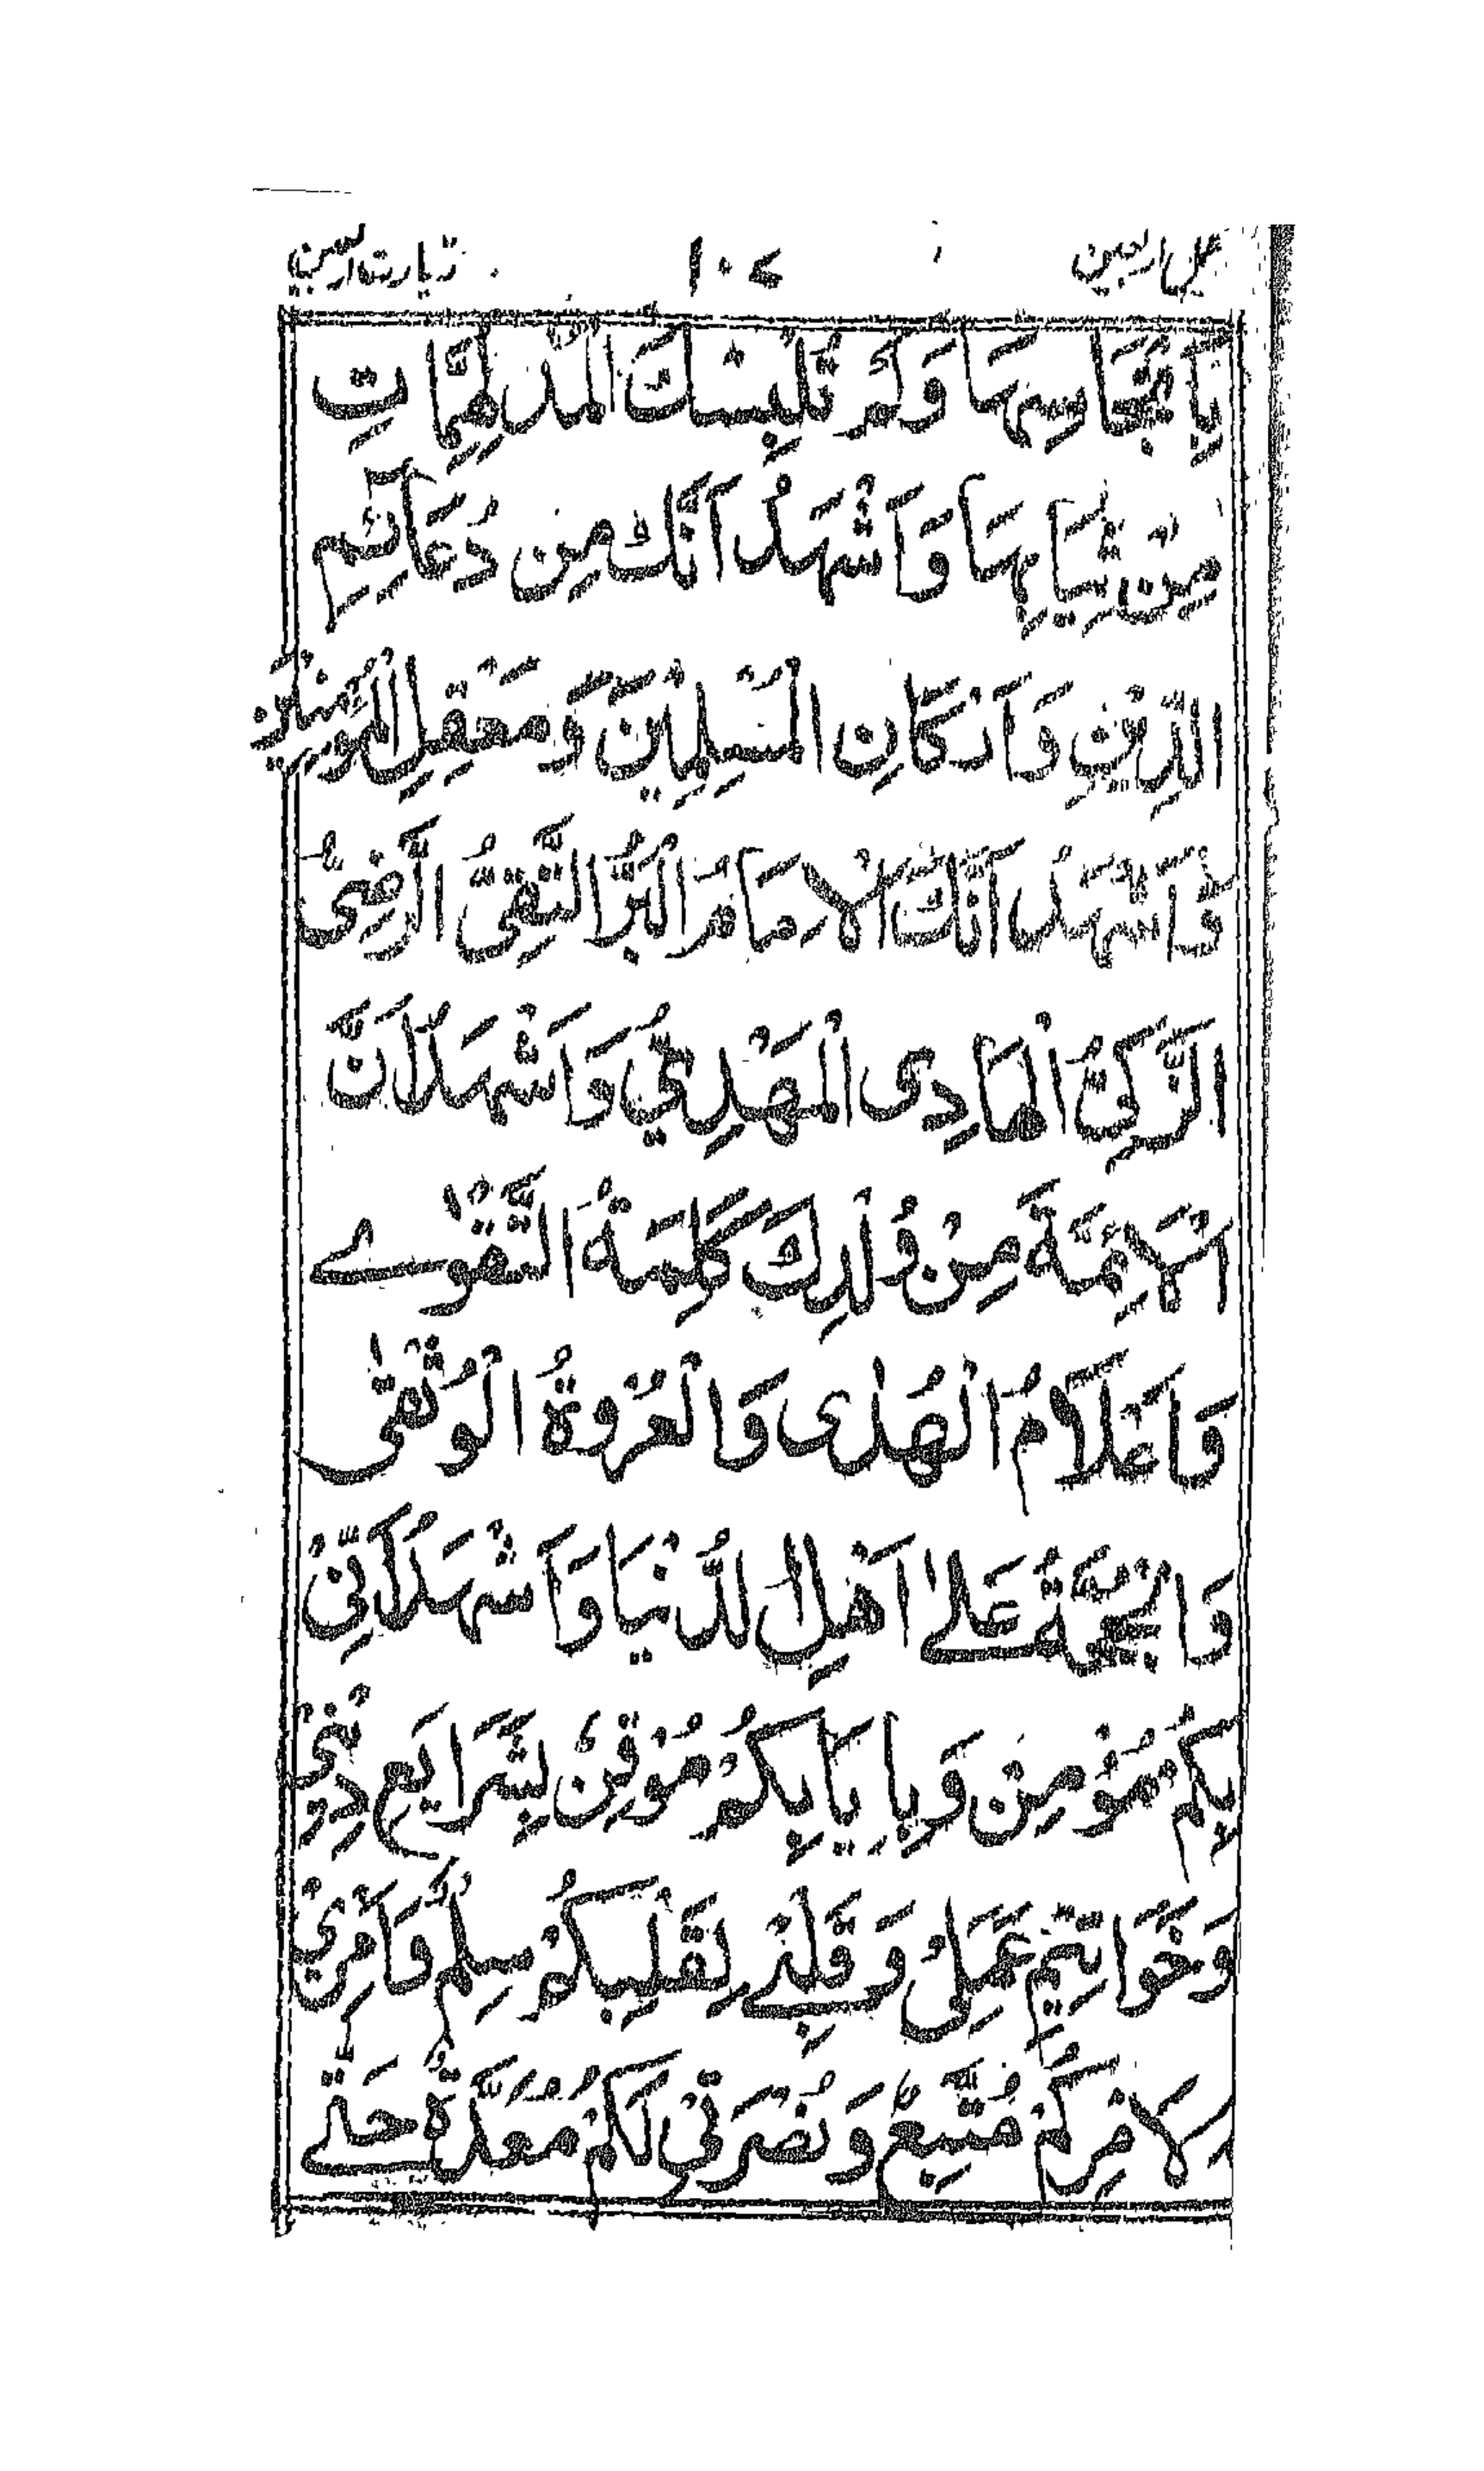 عمل اربعین ١٠٤ زیارت اربعین
بِاَنْجَاسِهَا وَلَمْ تُلْبِسْكَ الْمُدْلَهِمَّاتِ
مِنْ ثِيَابِهَا وَاَشْهَدُ اَنَّكَ مِنْ دُعَآئِمِ
الدِّيْنِ وَاَرْكَانِ الْمُسْلِمِيْنَ وَمَعْقِلِ الْمُؤْمِنِيْنَ
وَاَشْهَدُ اَنَّكَ الْاِمَامُ الْبَرُّ التَّقِيُّ الرَّضِىُّ
الزَّكِىُّ الْهَادِى الْمَهْدِيُّ وَاَشْهَدُ اَنَّ
الْاَئِمَّةَ مِنْ وُلْدِكَ كَلِمَةُ التَّقْوٰے
وَاَعْلَامُ الْهُدٰى وَالْعُرْوَةُ الْوُثْقٰى
وَالْحُجَّةُ عَلٰے اَهْلِ الدُّنْيَا وَاَشْهَدُ اَنِّىْ
بِكُمْ مُؤْمِنٌ وَبِاِيَابِكُمْ مُوْقِنٌ بِشَرَايَعِ دِيْنِىْ
وَخَوَاتِيْمِ عَمَلِىْ وَقَلْبِےْ لِقَلْبِكُمْ سِلْمٌ وَاَمْرِيْ
لِاَمْرِكُمْ مُتَّبِعٌ وَنُصْرَتِىْ لَكُمْ مُعَدَّةٌ حَتّٰے